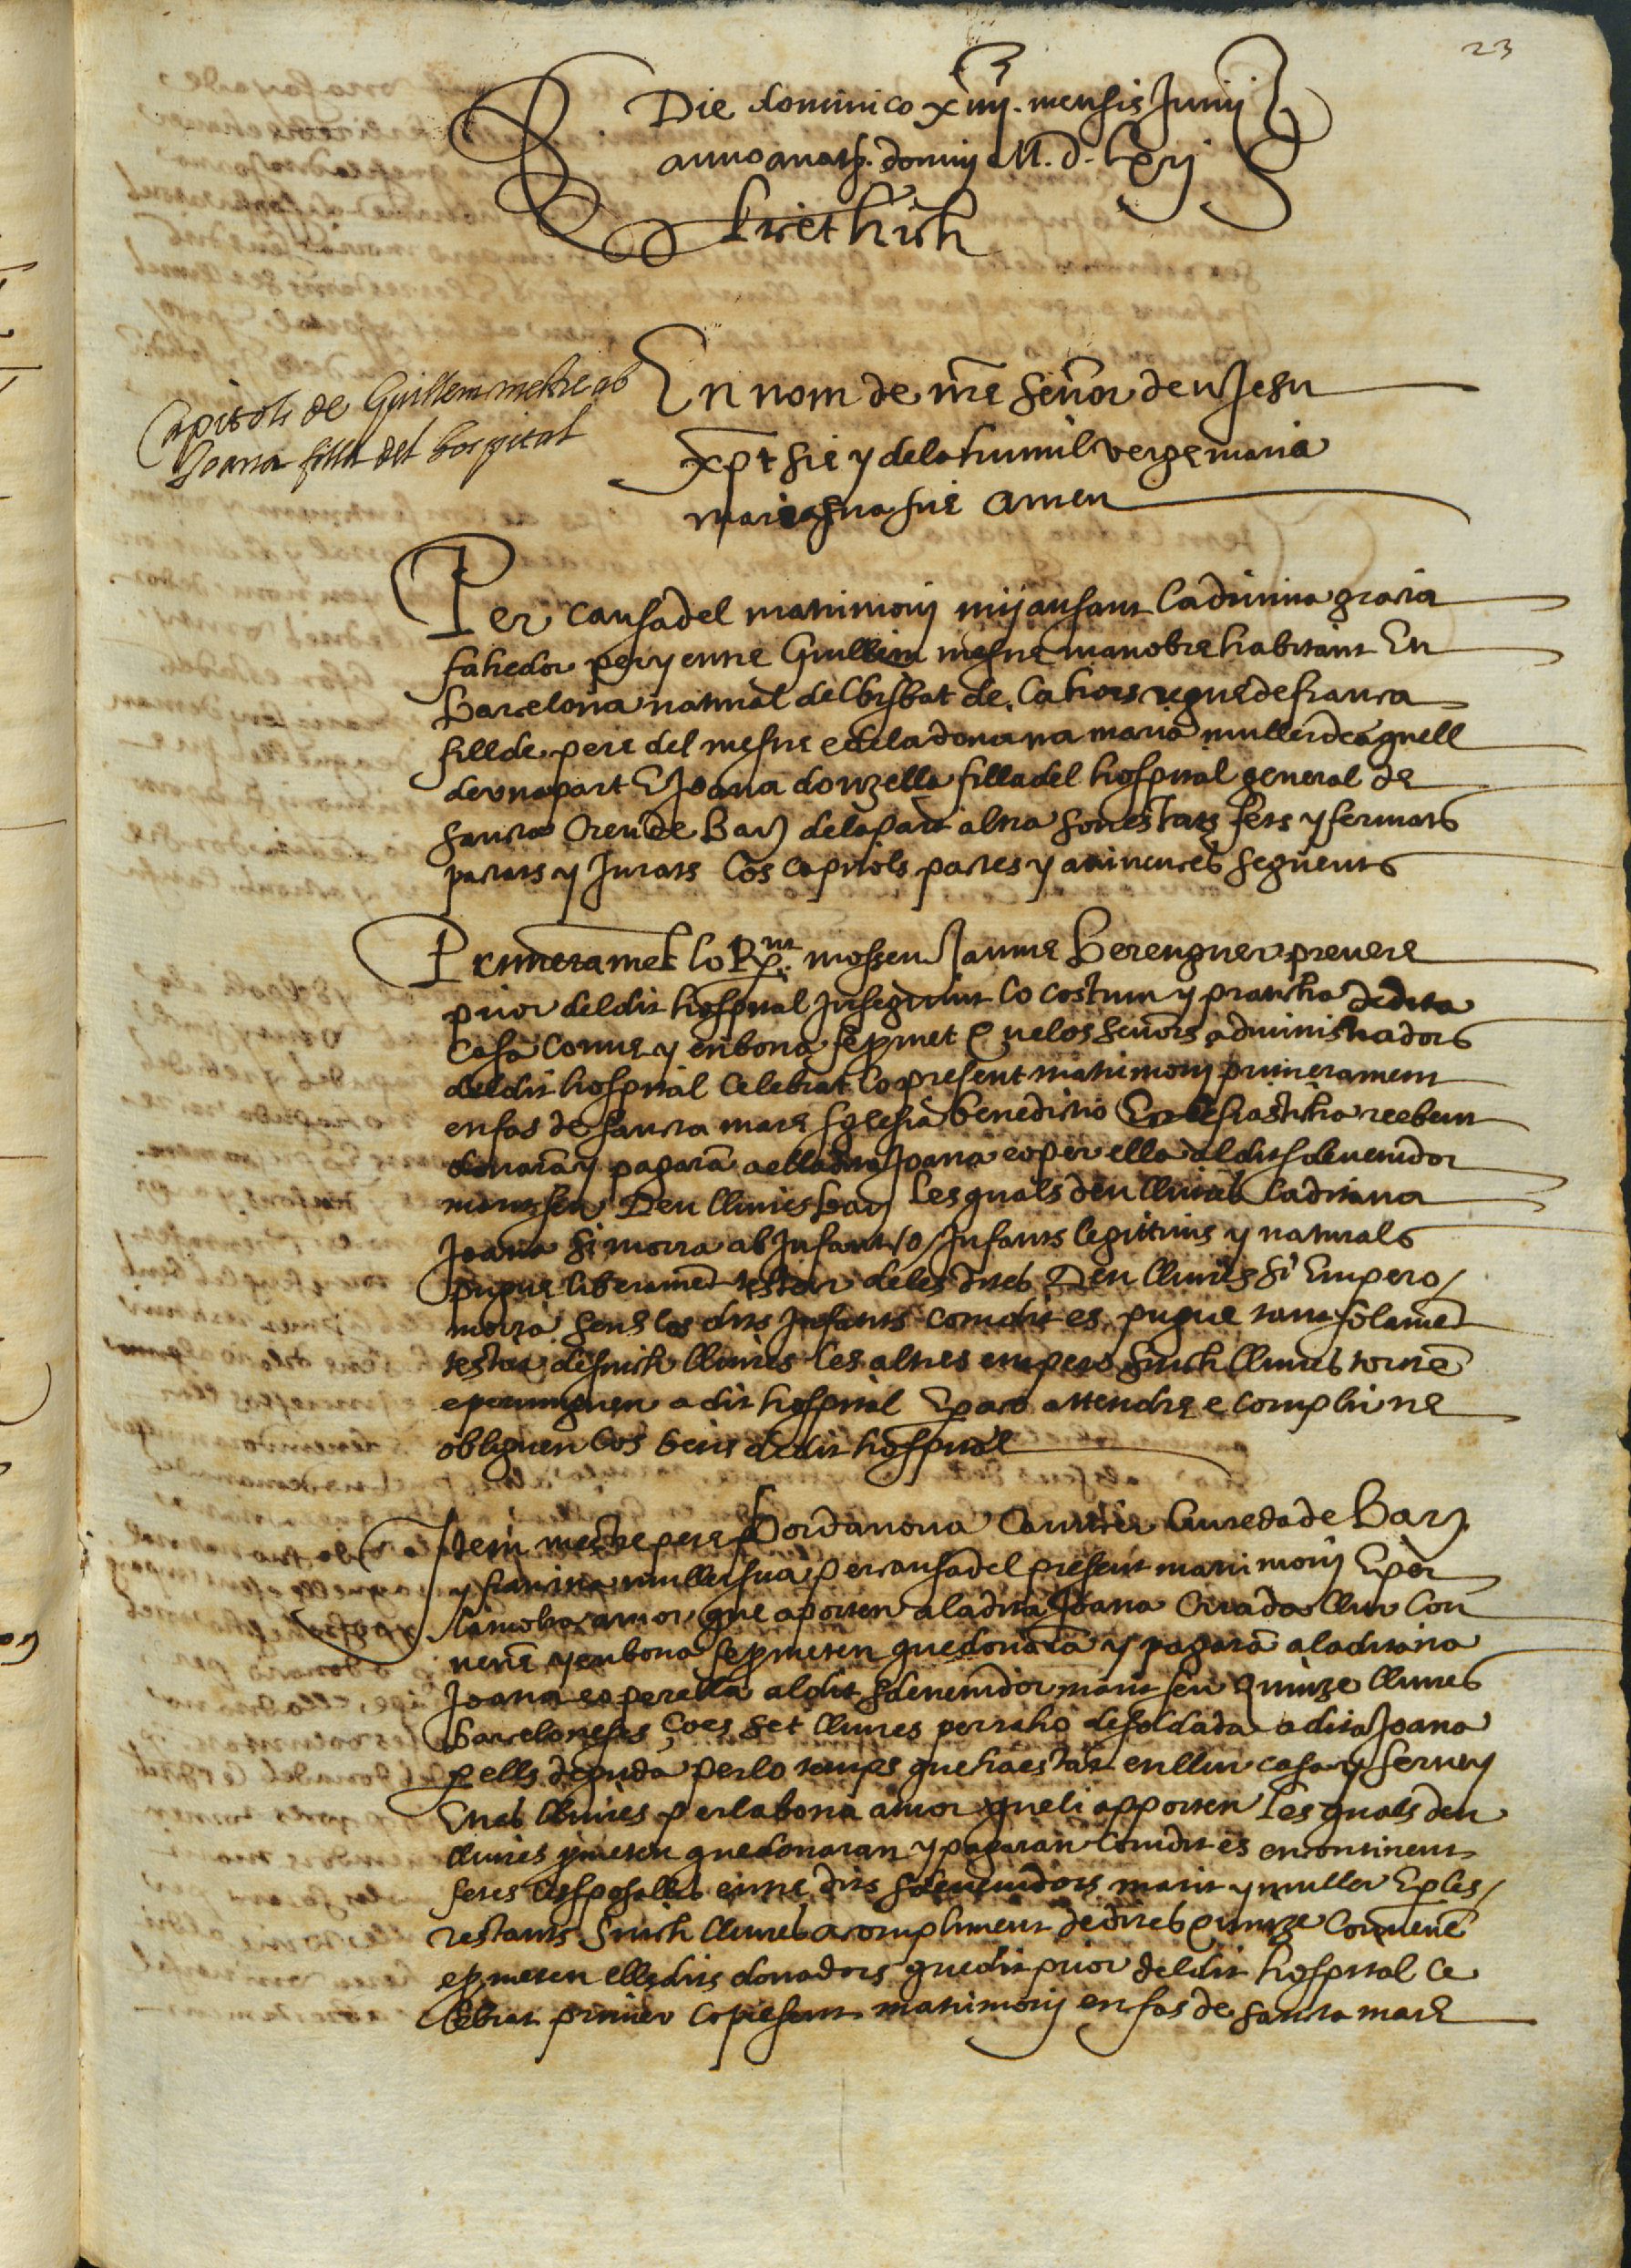 23
Die dominico xiiij. mensis Junij
anno a nat. domini M. d. lxvj
En nom de nre señor deu Jesu
xpt sie y de la humil verge maria
mare sua sie Amen
Capitols de Guillem mestre ab
Joana filla del hospital
Per causa del matrimoni mijansant la divina gracia
fahedor per y entre Guillem mestre manobre habitant En
Barcelona natural del bisbat de Cahors regne de franca
fill de pere del mestre e de la dona na maria muller de aquell
de una part E Joana donzella filla del hospital general de
sancta Creu de Bar de la part altra son estats fets y fermats
pactats y Jurats los capitols pactes y avinences seguents
Primerament lo Rnt mossen Jaume Berenguer prevere
prior del dit hospital Inseguint lo costum y practicha de dita
Casa Conve y en bona fe pmet q ne los señors administradors
del dit hospital Celebrat lo present matrimoni primerament
en fas de sancta mare sglesia benedictio Ecclesiasticha rebent
donarã y pagarã a ella dita Joana e o per ella al dit sdevenidor
marit seu Deu lliures bar les quals deu lliures la dita na
Joana si morra ab Infant /o/ Infants legittims y naturals
pugue liberament testar de les dites Deu lliures si Empero /
morra sens los dits Infants com dit es pugue tant solament
testar de sinch lliures les altres empero sinch lliures tornẽ
e pervinguen a dit hospital E paco attendre e complir ne
obliguen los bens de dit hospital
Item mestre pere Bordanova Ciureda de Bar
y francina muller sua per causa del present matrimoni E per
la molta amor que aporten a la dita Joana Criada llur Con
venẽ y en bona fe pmeten que donarã y pagarã a la dita na
Joana e o per ella al dit sdevenidor marit seu quinze lliures
barceloneses, Coes set lliures per raho de soldada a dita Joana
p ells deguda per lo temps que ha estat en llur casa y servey
E vuit lliures per la bona amor que li apporten les quals deu
lliures pmeten que donaran y pagaran com dit es encontinent
fetes les sposalles entre dits sdevenidors marit y muller E p les /
restants Sinch lliures a compliment de dites quinze Convenẽ
e pmeten ells dits donadors que dit prior del dit hospital Ce
lebrat primer lo present matrimoni en fas de sancta mare